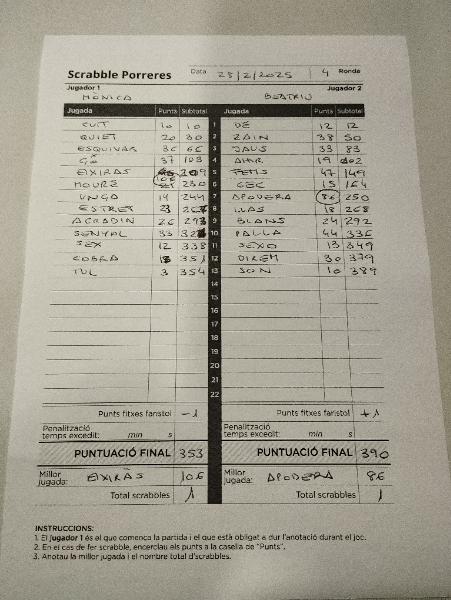 Scrabble Porreres Data 25/2/2025 4 Ronda
Jugador 1 Jugador 2
MÒNICA BEATRIU
Jugada Punts Subtotal Jugada Punts Subtotal
CUIT 10 10 1 DE 12 12
QUIET 20 30 2 ZAIN 38 50
ESQUIVAR 36 66 3 JAUS 33 83
37 103 4 AHIR 19 102
EIXIRÀS 106 209 5 FEMS 47 149
MOURÉ 230 6 CEC 15 164
UNGA 14 244 7 APODERA 86 250
ESTRET 23 267 8 LLAS 18 268
ACRADIN 26 293 9 BLANS 24 292
SENYAL 33 326 10 PALLA 44 336
SEX 12 338 11 SEXO 13 349
COBRA 13 351 12 DIREM 30 379
TUL 3 354 13 SON 10 389
14
15
16
17
18
19
20
21
22
Punts fitxes faristol -1 Punts fitxes faristol +1
Penalització temps excedit: min s Penalització temps excedit: min s
PUNTUACIÓ FINAL 353 PUNTUACIÓ FINAL 390
Millor jugada: EIXIRÀS 106 Millor jugada: APODERA 86
Total scrabbles 1 Total scrabbles 1
INSTRUCCIONS:
1. El jugador 1 és el que comença la partida i el que està obligat a dur l'anotació durant el joc.
2. En el cas de fer scrabble, encercleu els punts a la casella de "Punts".
3. Anotau la millor jugada i el nombre total d'scrabbles.